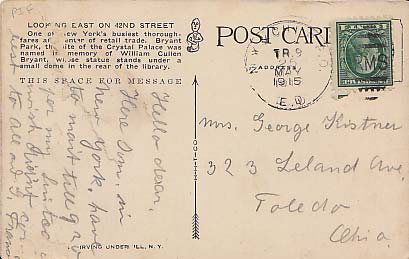 LOOKING EAST ON 42ND STREET
One of New York's busiest thorough-
fares and center of retail trade. Bryant
Park, the site of the Crystal Palace was
named in memory of William Cullen
Bryant, whose statue stands under a
small dome in the rear of the library.
THIS SPACE FOR MESSAGE
POST CARD
ADDRESS
MAY
1915
Hello dear,
Here I am, in
New York, have
to wait till 9
for my
best
to all
Mrs. George Kistner
323 Leland Ave,
Toledo
Ohio,
IRVING UNDERHILL, N.Y.